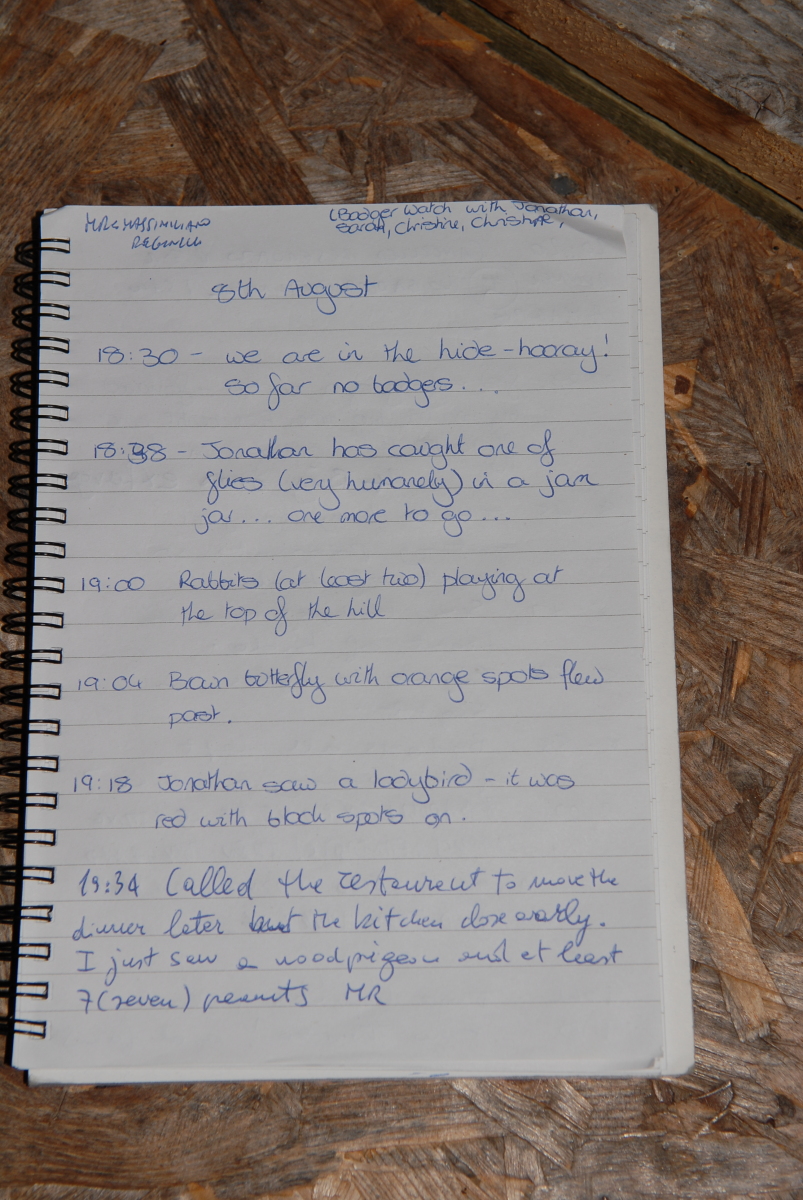 MR & MASSIMILIANO
(Badger Watch with Jonathan,
Sarah, Christine, Christine,
8th August
18:30 - we are in the hide - hooray!
so far no badgers....
18:38 - Jonathan has caught one of
flies (very humanely) in a jam
jar... one more to go...
19:00 Rabbits (at least two) playing at
the top of the hill
19:04 Brown butterfly with orange spots flew
past.
19:18 Jonathan saw a ladybird - it was
red with black spots on.
19:34 Called the restaurent to move the
dinner later but the kitchen close early.
I just saw a woodpigeon and at least
7 (seven) peanuts MR